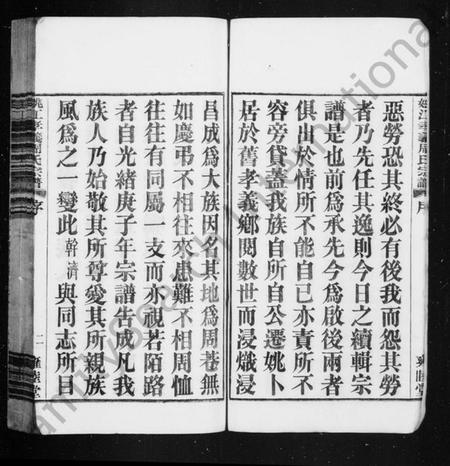 惡勞恐其終必有後我而怨其勞
者乃先任其逸則今日之續輯宗
譜是也前為承先今為啟後兩者
俱出於情所不能自已亦責所不
容旁貸蓋我族自所自公遷姚卜
居於舊孝義鄉閱數世而浸熾浸
昌成為大族因名其地為周巷無
如慶弔不相往來患難不相周恤
往往有同屬一支而亦視若陌路
者自光緒庚子年宗譜告成凡我
族人乃始敬其所尊愛其所親族
風為之一變此幹濟與同志所目
姚江孝義周氏宗譜 序
二 雍睦堂